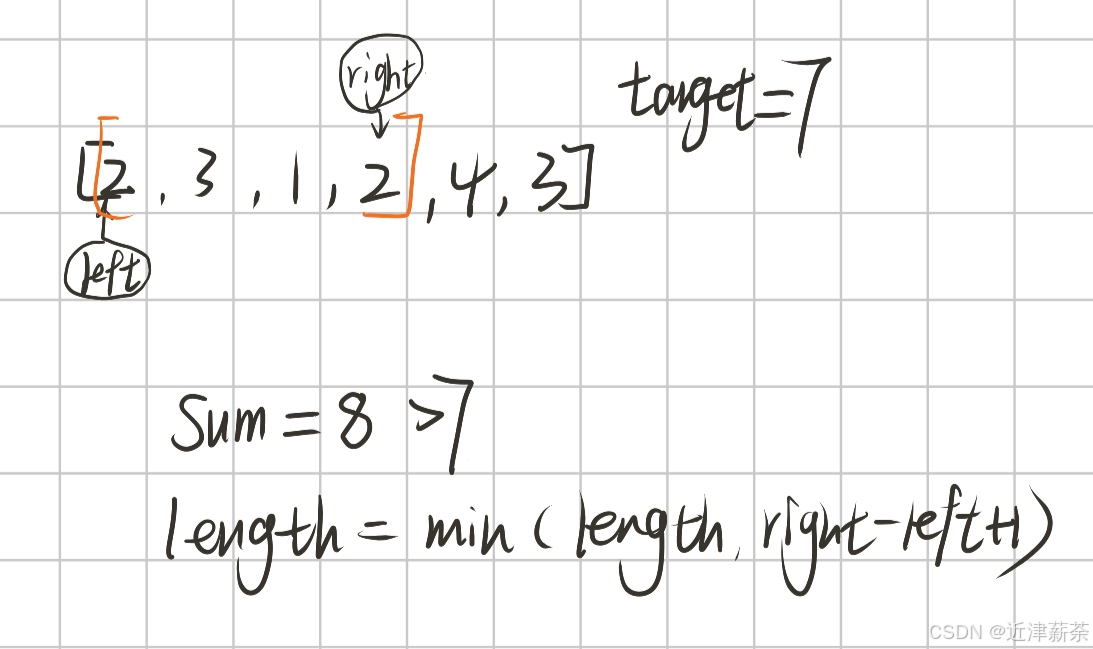 right
target=7
[2, 3, 1, 2, 4, 3]
left
Sum = 8 >7
length = min ( length, right-left+1)
CSDN @近津薪荼